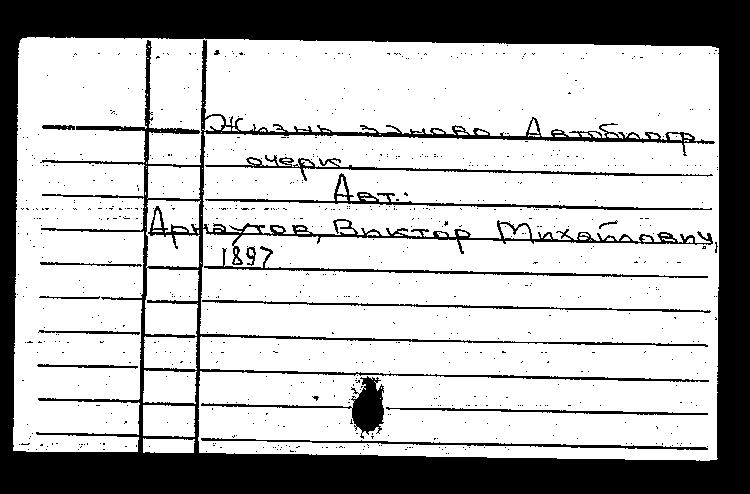 Жизнь заново. Автобиогр.
очерк.
Авт.:
Арнаутов, Виктор Михайлович,
1897